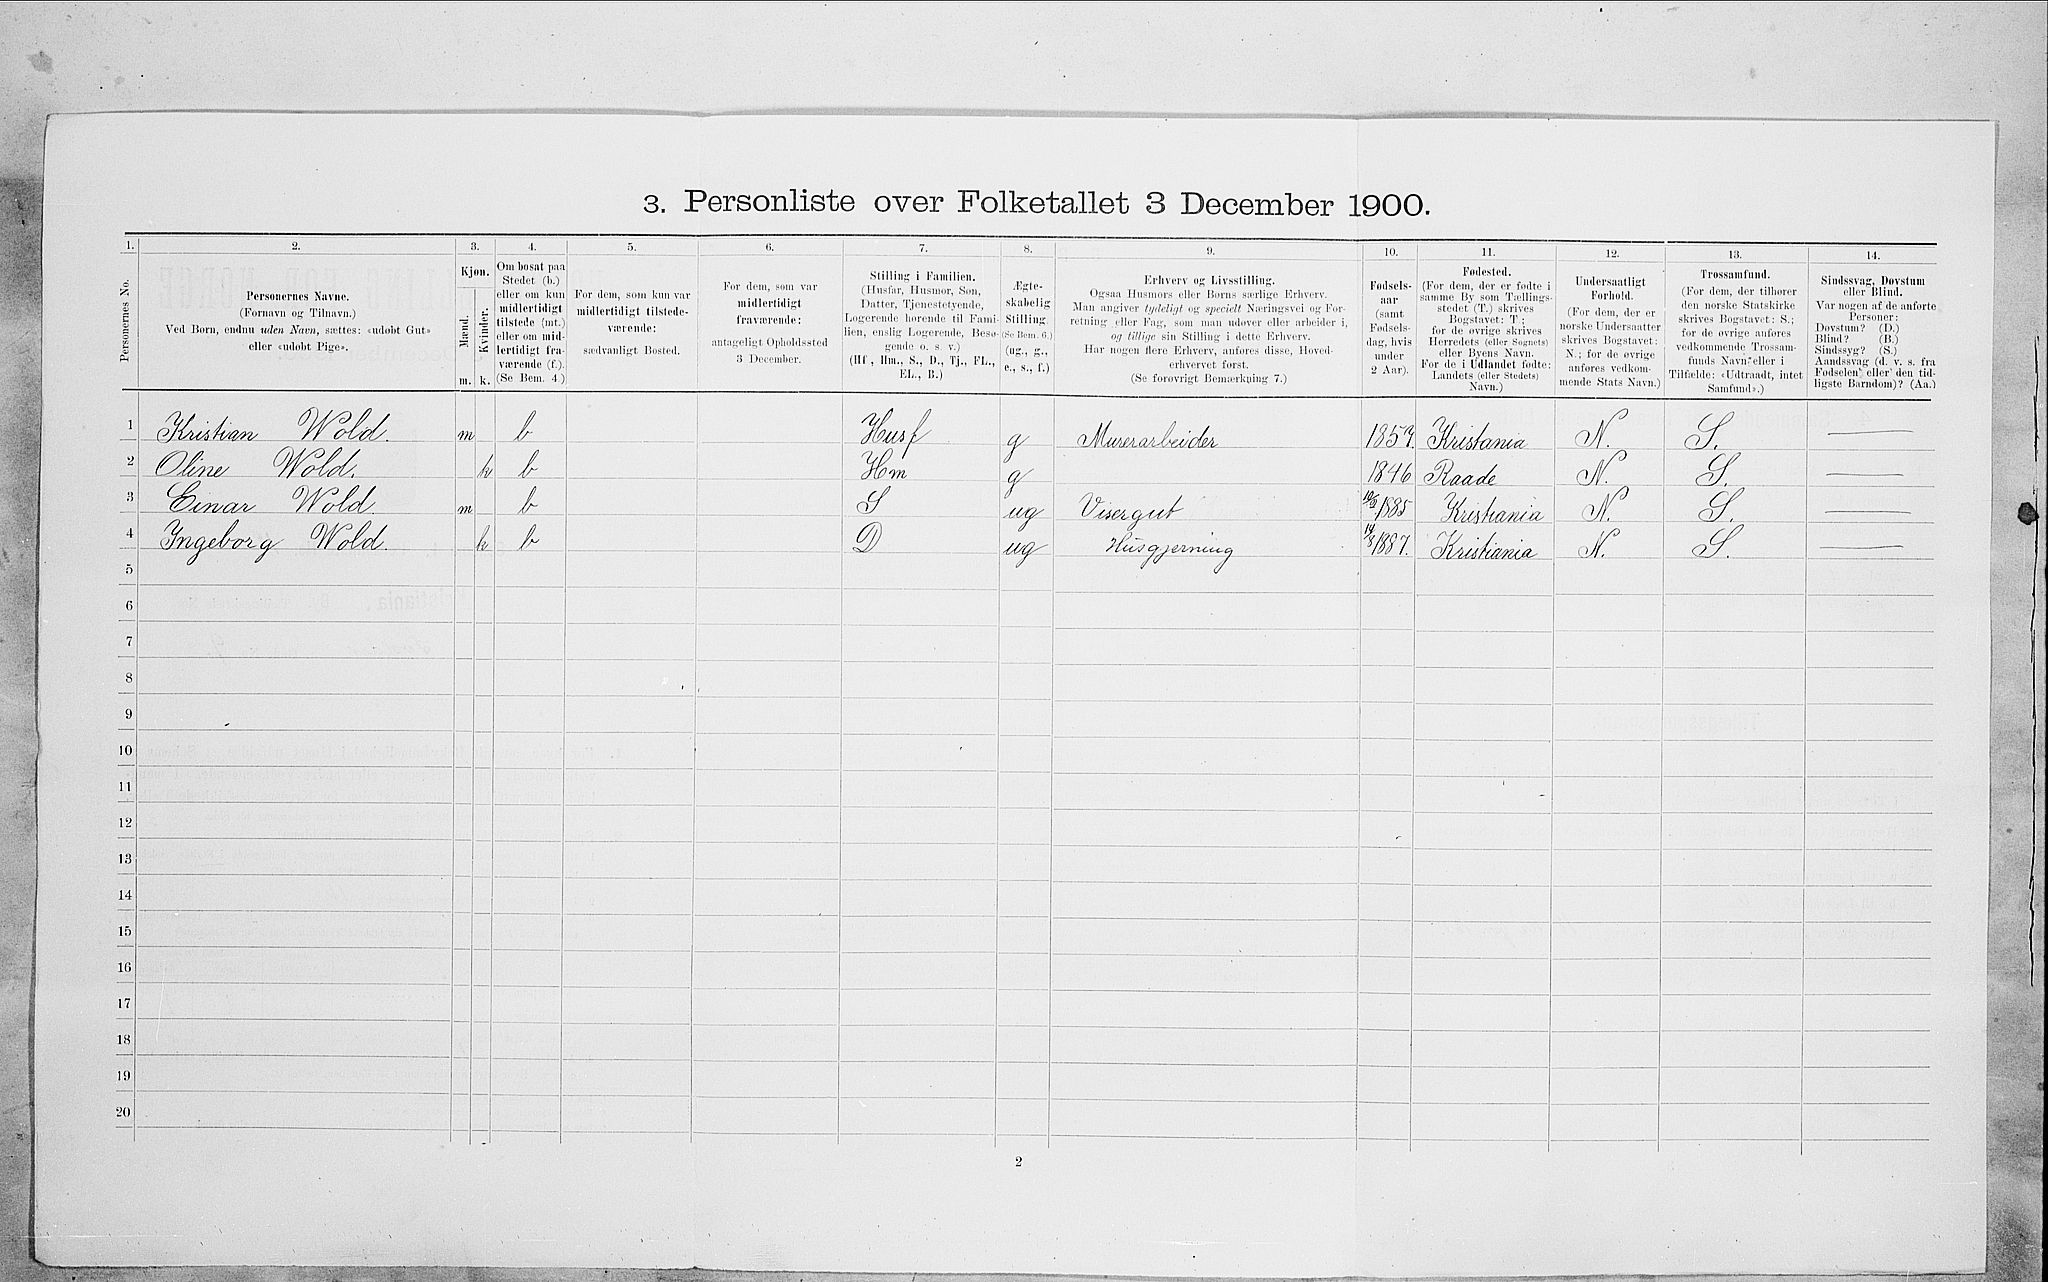 3. Personliste over Folketallet 3 December 1900.
1. 2. 3. 4. 5. 6. 7. 8. 9. 10. 11. 12. 13. 14.
Personernes No.
Personernes Navne.
(Fornavn og Tilnavn.)
Ved Børn, endnu uden Navn, sættes: «udøbt Gut»
eller «udøbt Pige».
Kjøn.
Mænd.
Kvinder.
m. k.
Om bosat paa
Stedet (b.)
eller om kun
midlertidigt
tilstede (mt.)
eller om mid-
lertidigt fra-
værende (f.).
(Se Bem. 4.)
For dem, som kun var
midlertidigt tilstede-
værende:
sædvanligt Bosted.
For dem, som var
midlertidigt
fraværende:
antageligt Opholdssted
3 December.
Stilling i Familien.
(Husfar, Husmor, Søn,
Datter, Tjenestetyende,
Logerende hørende til Fami-
lien, enslig Logerende, Besø-
gende o. s. v.)
(Hf., Hm., S., D., Tj., FL.,
EL., B.)
Ægte-
skabelig
Stilling.
(Se Bem. 6.)
(ug., g.,
e., s., f.)
Erhverv og Livsstilling.
Ogsaa Husmors eller Børns særlige Erhverv.
Man angiver tydeligt og specielt Næringsvei og For-
retning eller Fag, som man udøver eller arbeider i,
og tillige sin Stilling i dette Erhverv.
Har nogen flere Erhverv, anføres disse, Hoved-
erhvervet først.
(Se forøvrigt Bemærkning 7.)
Fødsels-
aar
(samt
Fødsels-
dag, hvis
under
2 Aar).
Fødested.
(For dem, der er fødte i
samme By som Tællings-
stedet (T.) skrives
Bogstavet: T.;
for de øvrige skrives
Herredets (eller Sognets)
eller Byens Navn.
For de i Udlandet fødte:
Landets (eller Stedets)
Navn.)
Undersaatligt
Forhold.
(For dem, der er
norske Undersaatter
skrives Bogstavet:
N.; for de øvrige
anføres vedkom-
mende Stats Navn.)
Trossamfund.
(For dem, der tilhører
den norske Statskirke
skrives Bogstavet: S.;
for de øvrige anføres
vedkommende Trossam-
funds Navn eller i
Tilfælde: «Udtraadt, intet
Samfund».)
Sindssvag, Døvstum
eller Blind.
Var nogen af de anførte
Personer:
Døvstum? (D.)
Blind? (B.)
Sindssyg? (S.)
Aandssvag (d. v. s. fra
Fødselen eller den tid-
ligste Barndom)? (Aa.)
1 Kristian Wold. m b Husf g Murerarbeider Kristania N. S. —
2 Oline Wold. k b Hm g 1846 Raade N. S. —
3 Einar Wold. m b S ug Visergut 1885 Kristiania N. S. —
4 Ingeborg Wold. k b D ug Husgjerning 1887. Kristiania N. S. —
5
6
7
8
9
10
11
12
13
14
15
16
17
18
19
20
2